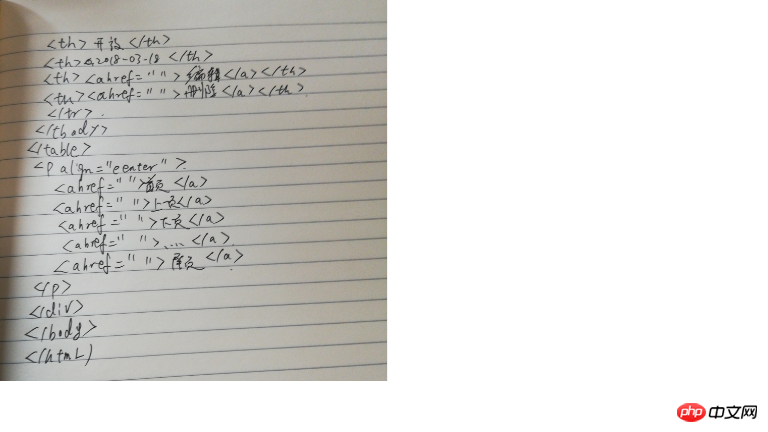 <th>开设</th>
<th>2018-03-18</th>
<th><ahref=" ">编辑</a></th>
<th><ahref=" ">删除</a></th>
</tr>
</tbody>
</table>
<p align="center">
<ahref=" ">首页</a>
<ahref=" ">上页</a>
<ahref=" ">下页</a>
<ahref=" ">...</a>
<ahref=" ">页</a>
</p>
</div>
</body>
</html)
php 中文网